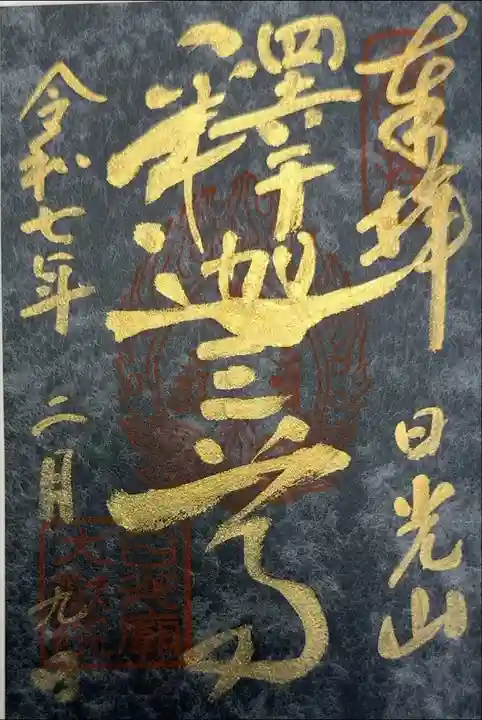 奉拝
日光山
釋迦三尊
令和七年
二月九日
大猷院